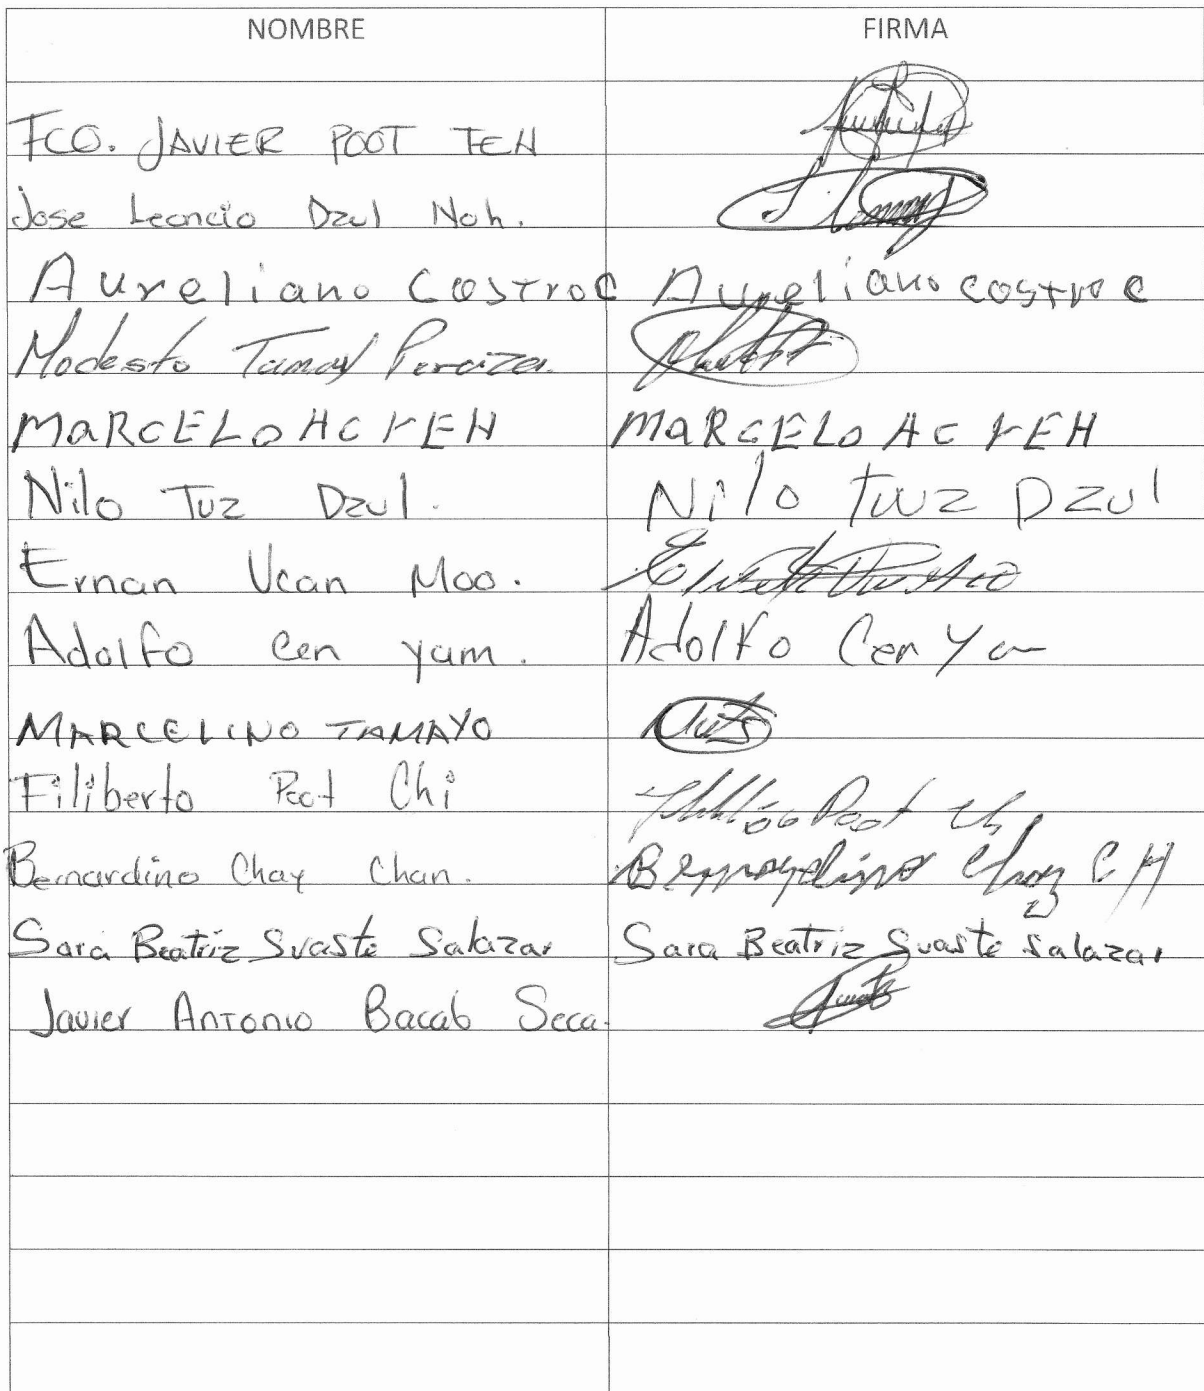 NOMBRE FIRMA
FCO. JAVIER POOT TEH
Jose Leoncio Dzul Noh.
Aureliano Costro C Aureliano costro C
Modesto Tamay Peraiza.
MARCELO AC YEH MARCELO AC YEH
Nilo Tuz Dzul. Nilo tuz Dzul
Ernan Ucan Moo.
Adolfo Cen yam. Adolfo Cen Y
MARCELINO TAMAYO
Filiberto Poot Chi Poot Ch
Bernardino Chay Chan. Chay C H
Sara Beatriz Suaste Salazar Sara Beatriz Suaste Salazar
Javier Antonio Bacab Seca.